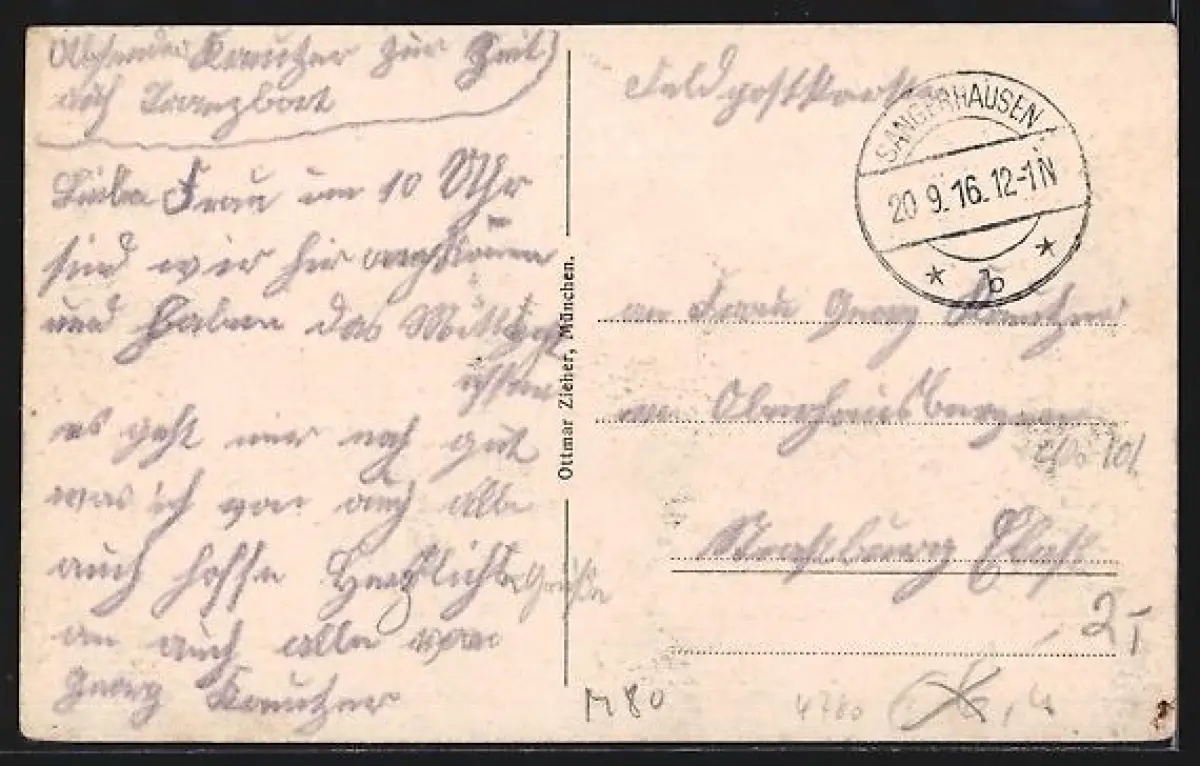 Absender Kreutzer zur Zeit
auf Transport
Liebe Frau um 10 Uhr
sind wir hir angekomen
und Haben das Mittag
essen
es geht mir noch gut
was ich von auch alle
auch hoffe Herzlichte Grüße
an auch alle von
Georg Kreutzer
Ottmar Zieher, München.
Feldpostkarte
SANGERHAUSEN
20 9. 16. 12-1 N
* b *
an Frau Georg Kreutzer
in Oberhausbergen
Strassburg Elsass
2,-
M80